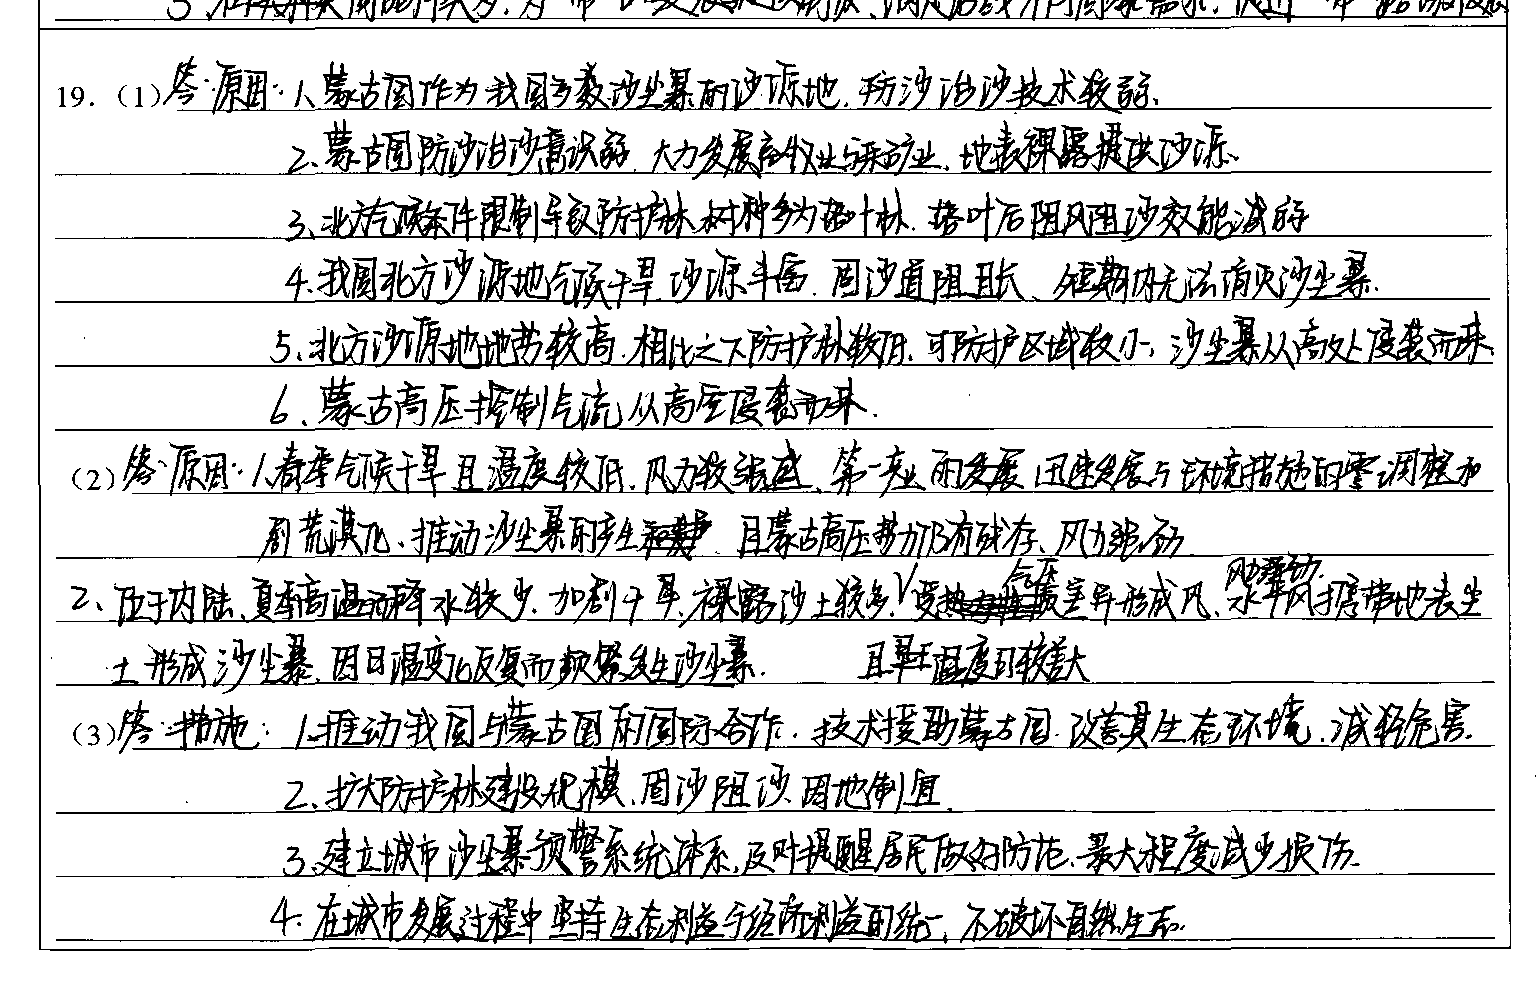 19.（1）答：原因：1、蒙古国作为我国多数沙尘暴的沙源地，防沙治沙技术较弱、
2、蒙古国防沙治沙意识弱，大力发展畜牧业与采矿业，地表裸露提供沙源、
3、北方气候条件限制导致防护林树种多为落叶林，落叶后阻风阻沙效能减弱
4、我国北方沙源地气候干旱，沙源丰富，固沙道阻且长、短期内无法消灭沙尘暴.
5、北方沙源地地势较高，相比之下防护林较低，可防护区域较小，沙尘暴从高处侵袭而来、
6、蒙古高压控制气流，从高空侵袭而来.
（2）答：原因：1、春季气候干旱且温度较低，风力较强盛、第一产业的发展迅速发展与环境措施的调整加
剧荒漠化、推动沙尘暴的产生 且蒙古高压势力仍有残存、风力强劲
2、位于内陆、夏季高温而降水较少，加剧干旱，裸露沙土较多，受气压差异形成风、风力强劲 水平风携带地表尘
土形成沙尘暴，因日温变化反复而频繁发生沙尘暴. 且昼夜温度可较差大
（3）答：措施：1.推动我国与蒙古国的国际合作，技术援助蒙古国，改善其生态环境，减轻危害.
2、扩大防护林建设规模，固沙阻沙，因地制宜.
3、建立城市沙尘暴预警系统体系，及时提醒居民做好防范，最大程度减少损伤.
4、在城市发展过程中坚持生态利益与经济利益的统一，不破坏自然生态.